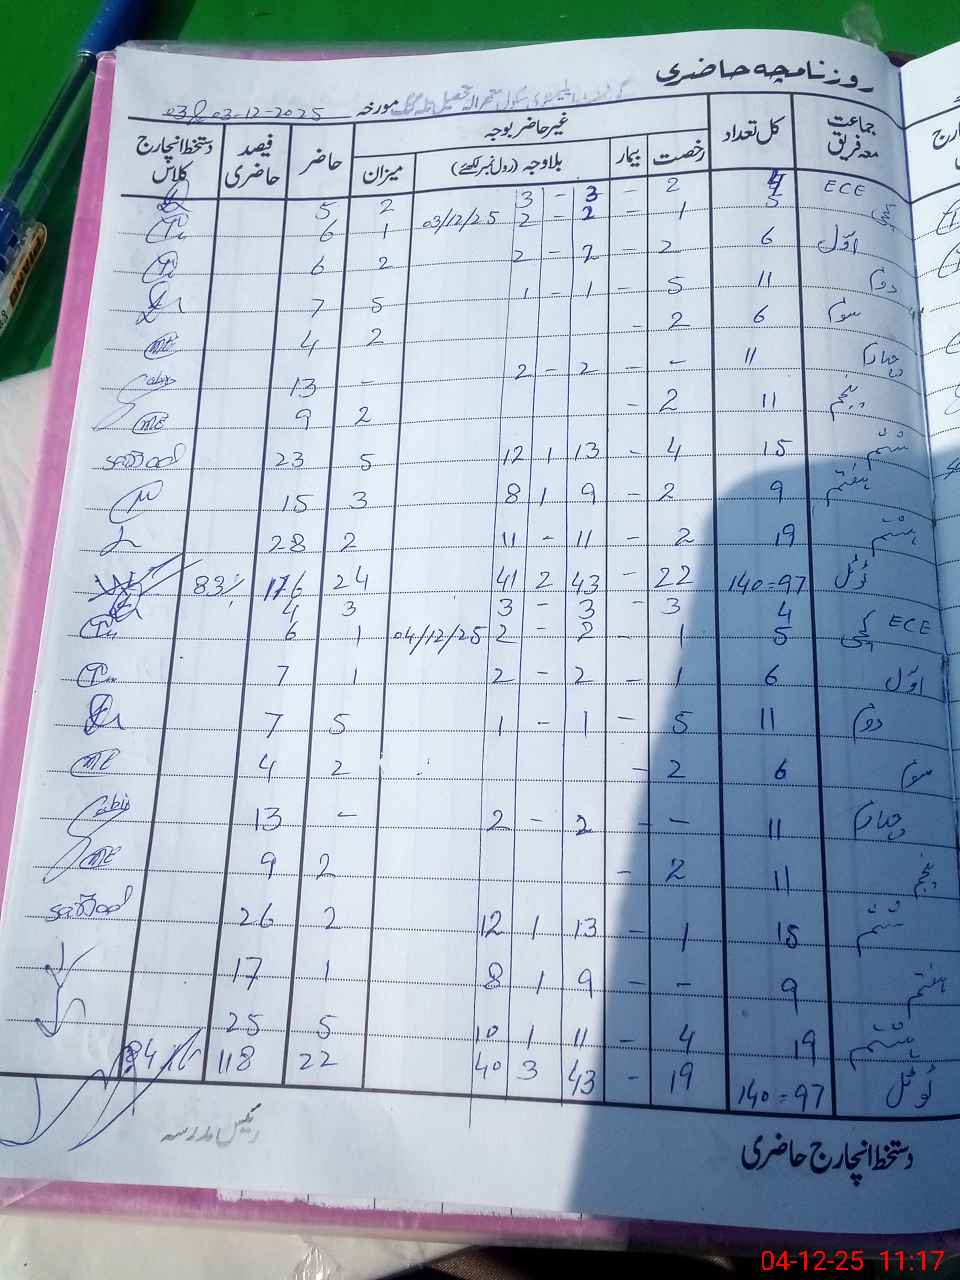 روزنامچہ حاضری
مورخہ 03-12-2025
جماعت معہ فریق کل تعداد غیر حاضر بوجہ حاضر فیصد حاضری دستخط انچارج کلاس
رخصت بیمار بلاوجہ (رول نمبر لکھئے) میزان
ECE 4 2 - 3 - 3 2 5
کچی 5 1 - 2 - 2 03/12/25 1 6
اوّل 6 2 - 2 - 2 2 6
دوم 11 5 - 1 - 1 5 7
سوم 6 2 - 2 4
چہارم 11 - - 2 - 2 - 13
پنجم 11 2 - 2 9
ششم 15 4 - 13 1 12 5 23
ہفتم 9 2 - 9 1 8 3 15
ہشتم 19 2 - 11 - 11 2 28
ٹوٹل 140=97 22 - 43 2 41 24 116 83%
ECE 4 3 - 3 - 3 3 4
کچی 5 1 - 2 - 2 04/12/25 1 6
اوّل 6 1 - 2 - 2 1 7
دوم 11 5 - 1 - 1 5 7
سوم 6 2 - 2 4
چہارم 11 - - 2 - 2 - 13
پنجم 11 2 - 2 9
ششم 15 1 - 13 1 12 2 26
ہفتم 9 - - 9 1 8 1 17
ہشتم 19 4 - 11 1 10 5 25
ٹوٹل 140=97 19 - 43 3 40 22 118 84%
دستخط انچارج حاضری رئیس مدرسہ
04-12-25 11:17